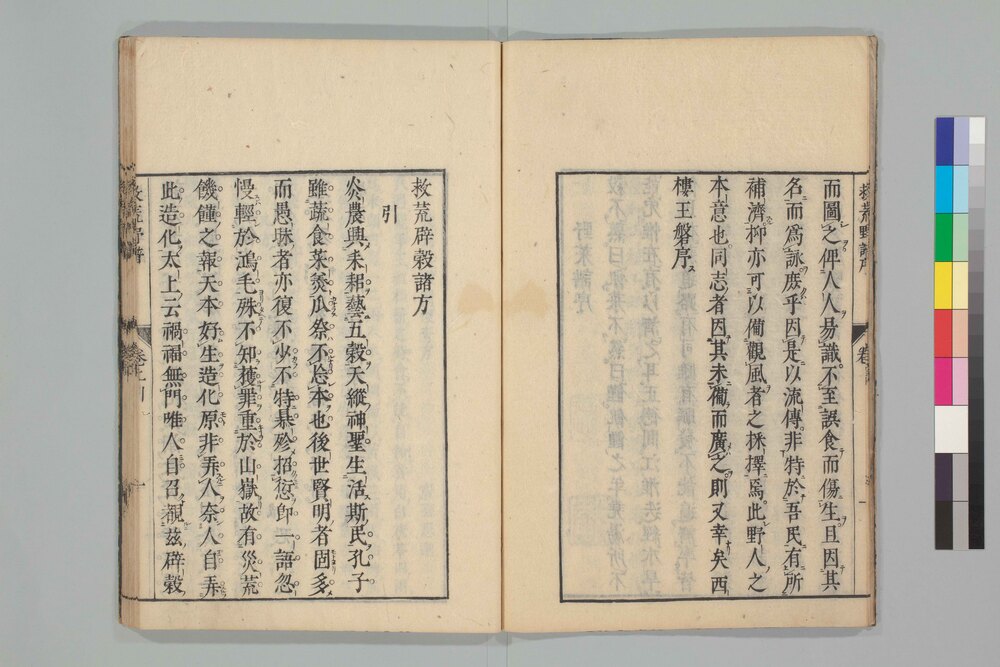 而圖之俾人人易識不至誤食而傷生且因其
名而爲詠庶乎因是以流傳非特於吾民有所
補濟抑亦可以備觀風者之採擇焉此野人之
本意也同志者因其未備而廣之則又幸矣西
樓王磐序
救荒辟穀諸方
引
炎農興耒耜藝五穀天縱神聖生活斯民孔子
雖蔬食菜羮瓜祭不忘本也後世賢明者固多
而愚昧者亦復不少不特暴殄招愆卽一語忽
慢輕於鴻毛殊不知獲罪重於山嶽故有災荒
饑饉之報天本好生造化原非弄人奈人自弄
此造化太上云禍福無門唯人自召覩茲辟穀